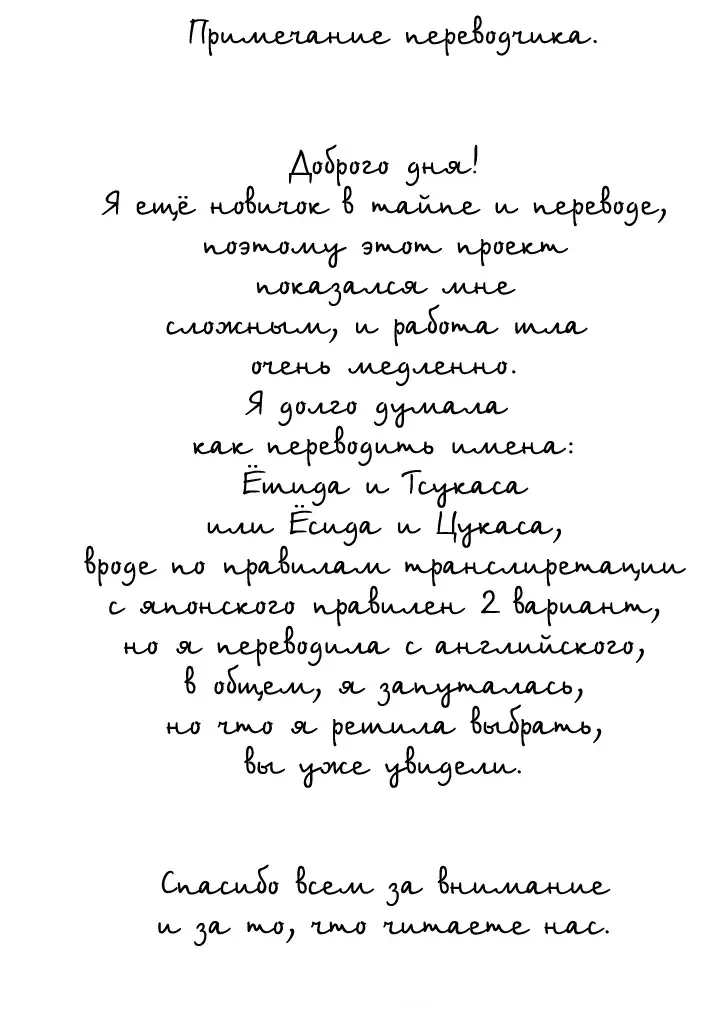 Примечание переводчика.
Доброго дня!
Я ещё новичок в тайпе и переводе,
поэтому этот проект
показался мне
сложным, и работа шла
очень медленно.
Я долго думала
как переводить имена:
Ёшида и Тсукаса
или Ёсида и Цукаса,
вроде по правилам транслиретации
с японского правилен 2 вариант,
но я переводила с английского,
в общем, я запуталась,
но что я решила выбрать,
вы уже увидели.
Спасибо всем за внимание
и за то, что читаете нас.